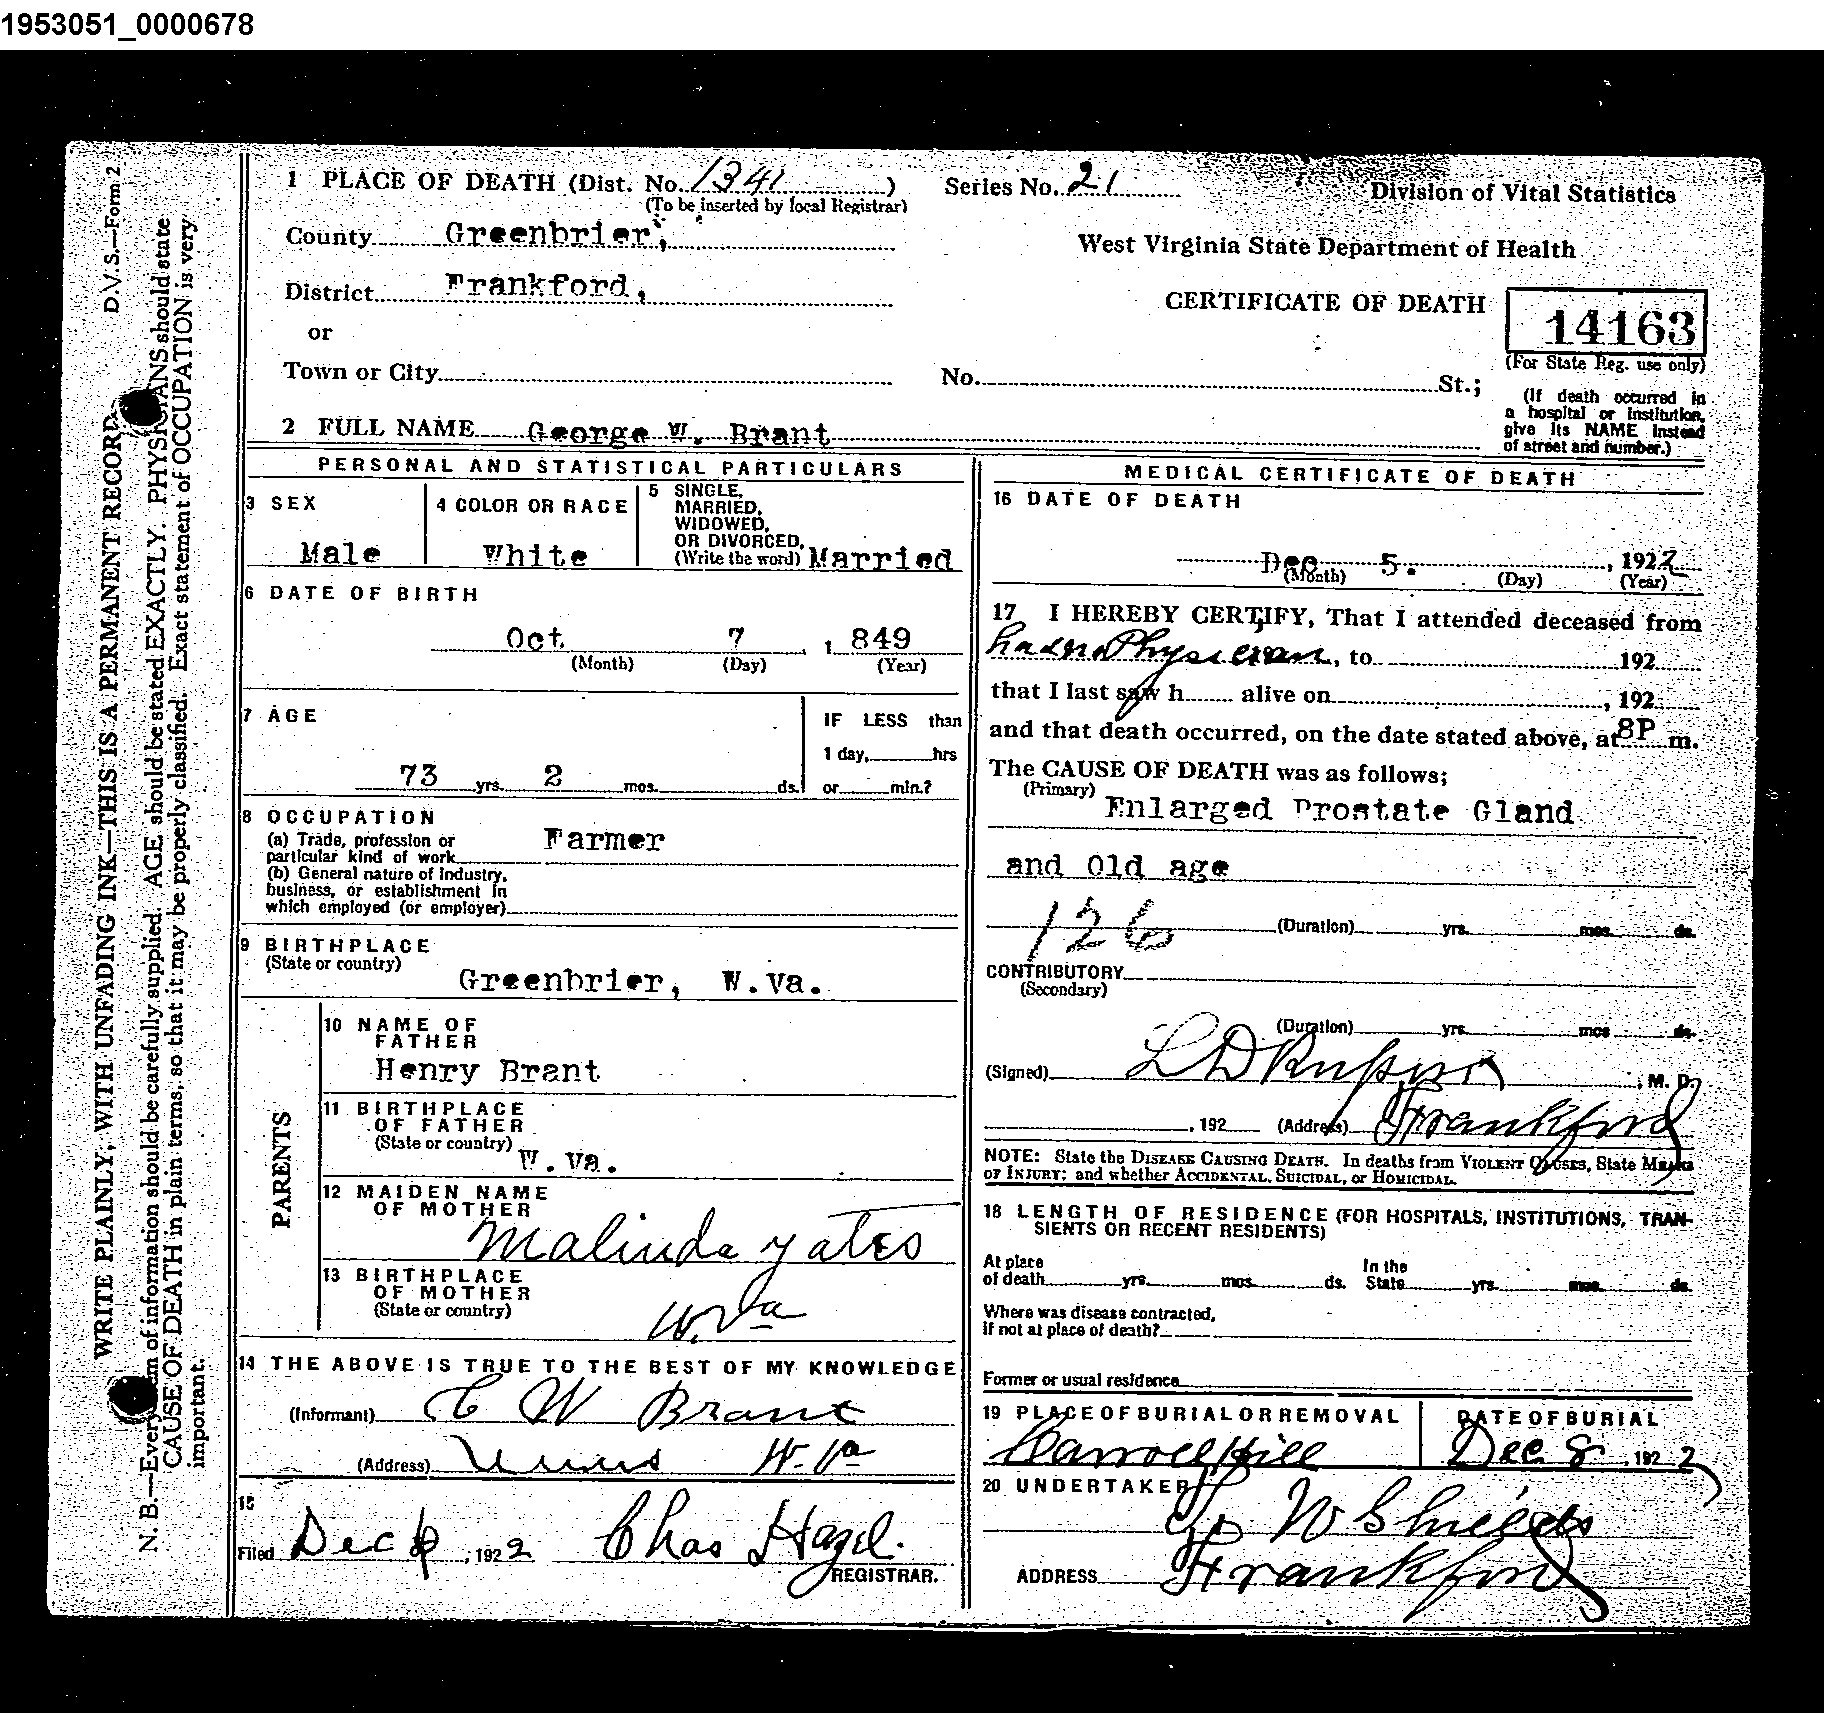 1953051_0000678
D.V.S.—Form 2
WRITE PLAINLY, WITH UNFADING INK—THIS IS A PERMANENT RECORD
N. B.—Every item of information should be carefully supplied. AGE should be stated EXACTLY. PHYSICIANS should state
CAUSE OF DEATH in plain terms, so that it may be properly classified. Exact statement of OCCUPATION is very
important.
1 PLACE OF DEATH (Dist. No. 1341 )
(To be inserted by local Registrar)
Series No. 21
Division of Vital Statistics
County Greenbrier,
West Virginia State Department of Health
District Frankford,
CERTIFICATE OF DEATH
14163
(For State Reg. use only)
or
Town or City
No. St.;
(If death occurred in
a hospital or institution,
give its NAME instead
of street and number.)
2 FULL NAME George W. Brant
PERSONAL AND STATISTICAL PARTICULARS
3 SEX
Male
4 COLOR OR RACE
White
5 SINGLE,
MARRIED,
WIDOWED,
OR DIVORCED,
(Write the word) Married
6 DATE OF BIRTH
Oct 7 , 849
(Month) (Day) (Year)
7 AGE
73 yrs. 2 mos. ds.
IF LESS than
1 day, hrs
or min.?
8 OCCUPATION
(a) Trade, profession or
particular kind of work Farmer
(b) General nature of industry,
business, or establishment in
which employed (or employer)
9 BIRTHPLACE
(State or country)
Greenbrier, W.Va.
PARENTS
10 NAME OF
FATHER
Henry Brant
11 BIRTHPLACE
OF FATHER
(State or country) W.Va.
12 MAIDEN NAME
OF MOTHER
Malinda Yates
13 BIRTHPLACE
OF MOTHER
(State or country)
W.Va
14 THE ABOVE IS TRUE TO THE BEST OF MY KNOWLEDGE
(Informant) C W Brant
(Address) Unus W.Va
15
Filed Dec 6, 1922 Chas Hazel.
REGISTRAR.
MEDICAL CERTIFICATE OF DEATH
16 DATE OF DEATH
Dec 5. , 1922
(Month) (Day) (Year)
17 I HEREBY CERTIFY, That I attended deceased from
had no Physician, to 192
that I last saw h alive on , 192
and that death occurred, on the date stated above, at 8P m.
The CAUSE OF DEATH was as follows;
(Primary)
Enlarged Prostate Gland
and Old age
126
(Duration) yrs. mos. ds.
CONTRIBUTORY
(Secondary)
(Duration) yrs. mos ds.
(Signed) L D , M. D.
, 192 (Address) Frankford
NOTE: State the DISEASE CAUSING DEATH. In deaths from VIOLENT CAUSES, State MEANS
OF INJURY; and whether ACCIDENTAL, SUICIDAL, or HOMICIDAL.
18 LENGTH OF RESIDENCE (FOR HOSPITALS, INSTITUTIONS, TRAN-
SIENTS OR RECENT RESIDENTS)
At place
of death yrs. mos. ds.
In the
State yrs. mos. ds.
Where was disease contracted,
If not at place of death?
Former or usual residence
19 PLACE OF BURIAL OR REMOVAL
Carroll Hill
DATE OF BURIAL
Dec 8 , 1922
20 UNDERTAKER
W Shields
ADDRESS Frankford